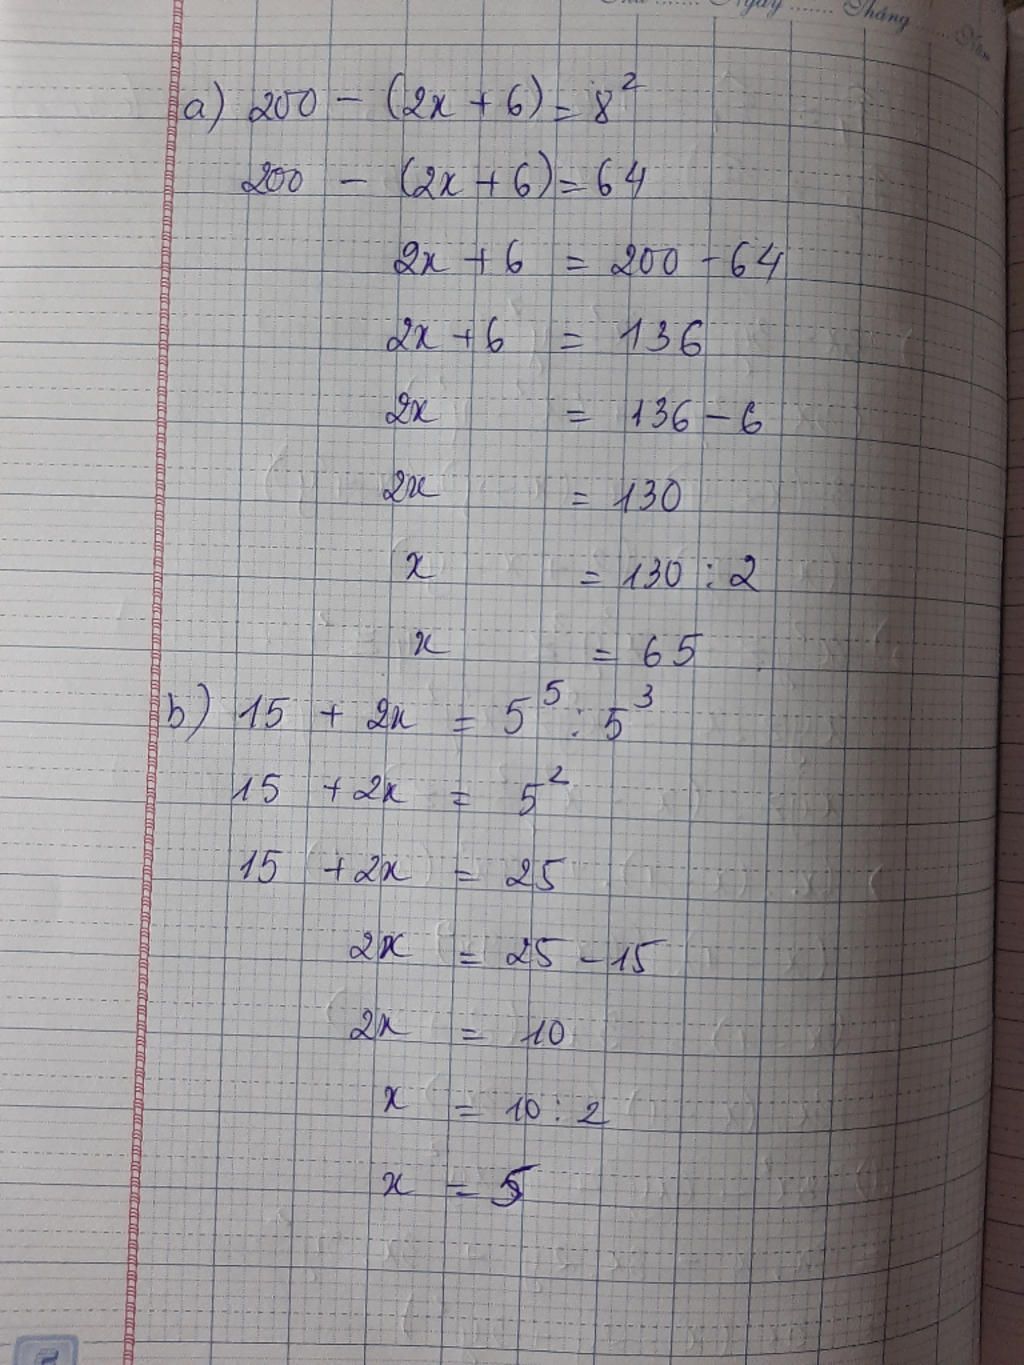 Ngày ........ Tháng ........ Năm
a) 200 - (2x + 6) = 8²
200 - (2x + 6) = 64
2x + 6 = 200 - 64
2x + 6 = 136
2x = 136 - 6
2x = 130
x = 130 : 2
x = 65
b) 15 + 2x = 5⁵ : 5³
15 + 2x = 5²
15 + 2x = 25
2x = 25 - 15
2x = 10
x = 10 : 2
x = 5